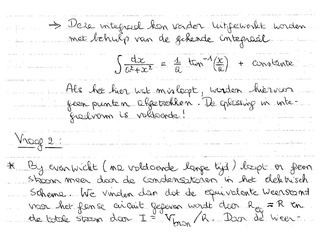 → Deze integraal kan verder uitgewerkt worden
met behulp van de gekende integraal
∫ dx/(a²+x²) = 1/a tan⁻¹(x/a) + constante
Als het hier wat misloopt, worden hiervoor
geen punten afgetrokken. De oplossing in inte-
graalvorm is voldoende!
Vraag 2:
* Bij evenwicht (na voldoende lange tijd) loopt er geen
stroom meer door de condensatoren in het elektrisch
schema. We vinden dan dat de equivalente weerstand
voor het ganse circuit gegeven wordt door R = R en
de totale stroom door I = V bron / R. Door de weer-